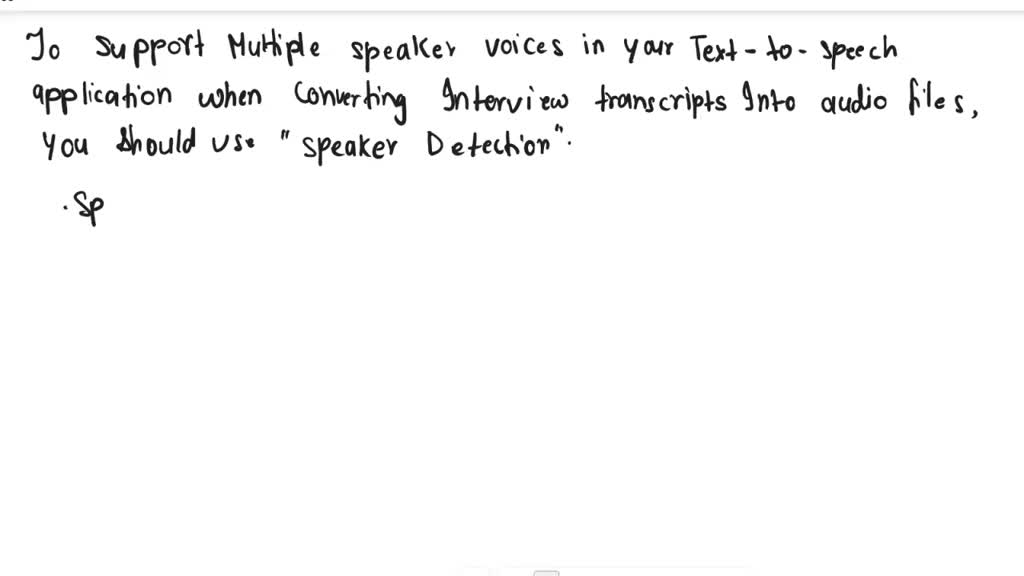 To support Multiple speaker voices in your Text-to-speech
application when Converting Interview transcripts Into audio files,
You should use "speaker Detection".
. Sp